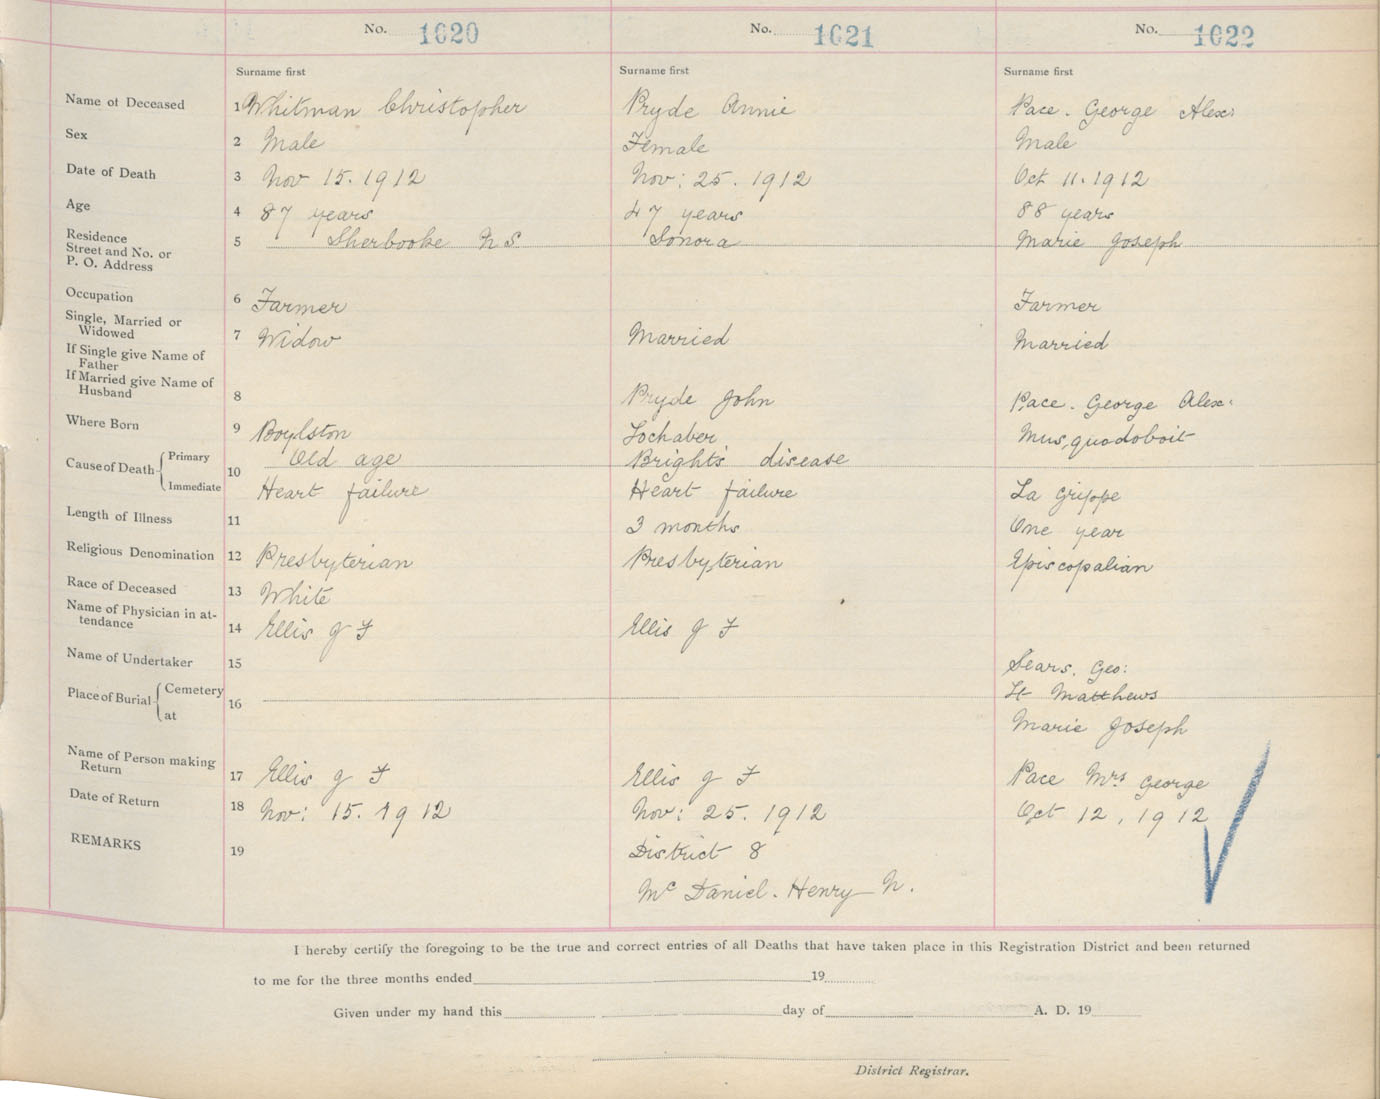 No. 1620 No. 1621 No. 1622
Surname first Surname first Surname first
Name of Deceased 1 Whitman Christopher Pryde Annie Pace. George Alex:
Sex 2 Male Female Male
Date of Death 3 Nov 15. 1912 Nov: 25. 1912 Oct 11. 1912
Age 4 87 years 47 years 88 years
Residence
Street and No. or
P. O. Address 5 Sherbooke N S. Sonora Marie Joseph
Occupation 6 Farmer Farmer
Single, Married or
Widowed 7 Widow Married Married
If Single give Name of
Father
If Married give Name of
Husband 8 Pryde John Pace. George Alex:
Where Born 9 Boylston Lochaber Musquodoboit
Cause of Death Primary 10 Old age Bright's disease
Immediate Heart failure Heart failure La Grippe
Length of Illness 11 3 months One year
Religious Denomination 12 Presbyterian Presbyterian Episcopalian
Race of Deceased 13 White
Name of Physician in at-
tendance 14 Ellis J F Ellis J F
Name of Undertaker 15 Sears, Geo:
Place of Burial Cemetery 16 St Matthews
at Marie Joseph
Name of Person making
Return 17 Ellis J F Ellis J F Pace Mrs George
Date of Return 18 Nov: 15. 1912 Nov: 25. 1912 Oct 12, 1912
REMARKS 19 District 8
Mc Daniel. Henry N.
I hereby certify the foregoing to be the true and correct entries of all Deaths that have taken place in this Registration District and been returned
to me for the three months ended 19
Given under my hand this day of A. D. 19
District Registrar.